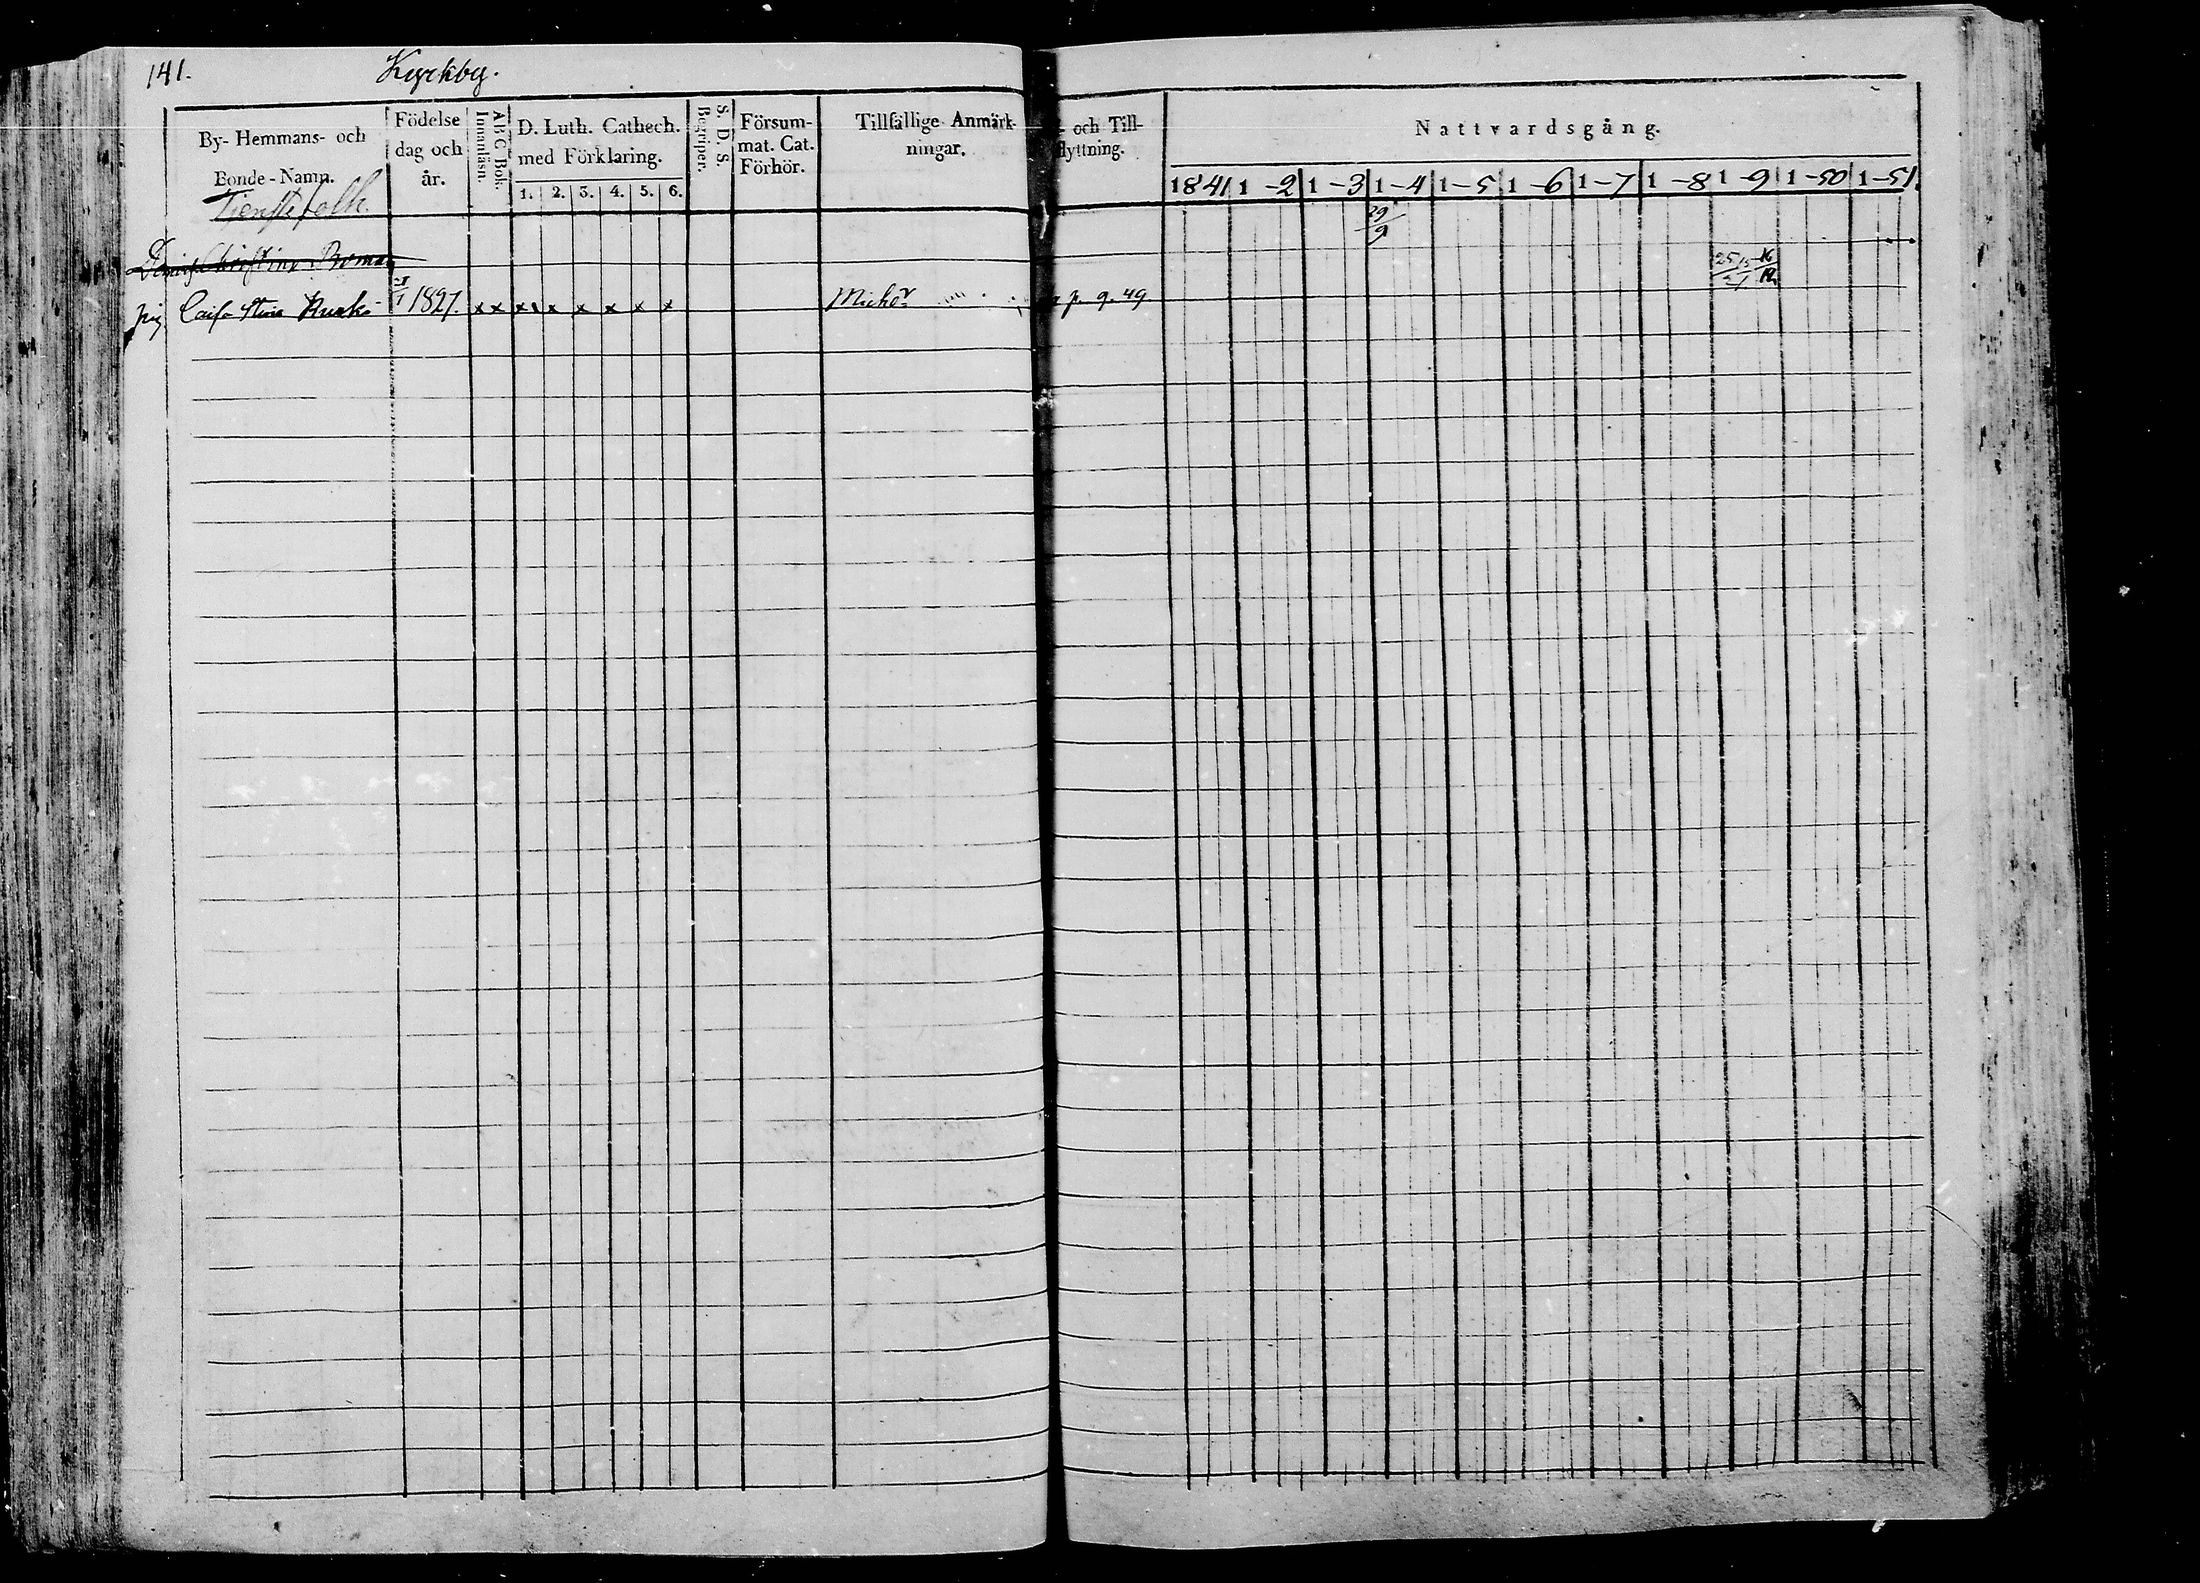 141.
Kyrkby.
By- Hemmans- och
Bonde-Namn.
Födelse
dag och
år.
A B C Bok.
Innanläsn.
D. Luth. Cathech.
med Förklaring.
1. 2. 3. 4. 5. 6.
S. D. S.
Begriper.
Försum-
mat. Cat.
Förhör.
Tillfällige Anmärk-
ningar.
och Till-
flyttning.
Nattvardsgång.
1841 1-2 1-3 1-4 1-5 1-6 1-7 1-8 1-9 1-50 1-51.
Tjenstefolk.
29/9
Christina Roman
pig Caisa Stina 1827. x x x x x x x x p. 9. 49